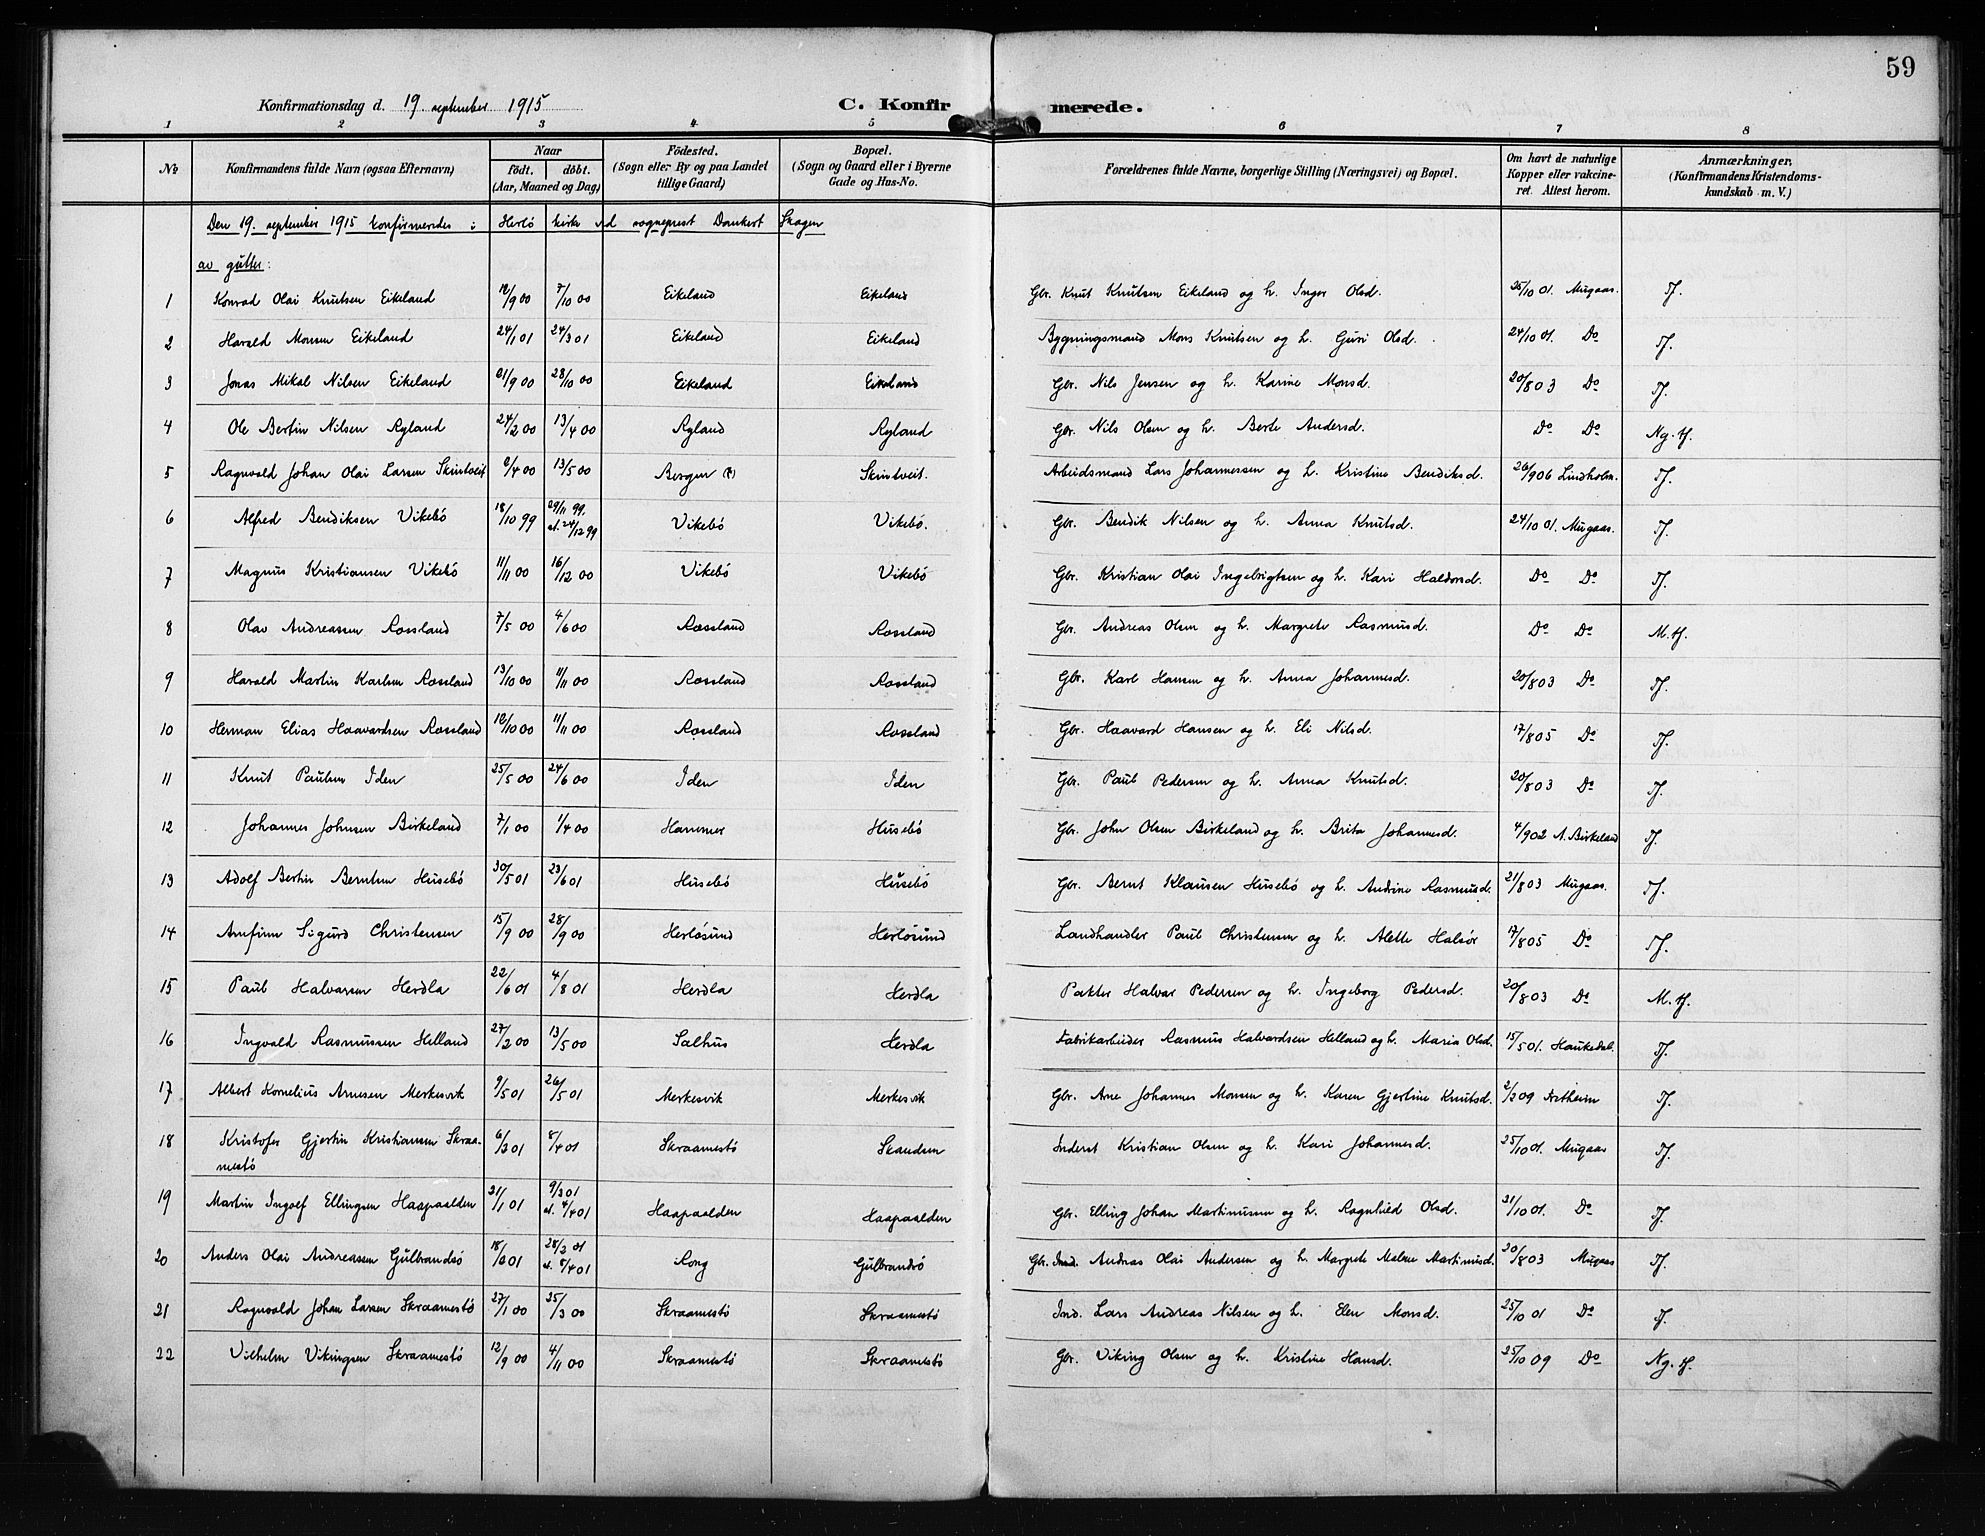 59
Konfirmationsdag d. 19. september 1915 C. Konfirmerede.
1 2 3 4 5 6 7 8
No Konfirmandens fulde Navn (ogsaa Efternavn) Naar födt. döbt. (Aar, Maaned og Dag) Födested. (Sogn eller By og paa Landet tillige Gaard) Bopæl. (Sogn og Gaard eller i Byerne Gade og Hus-No. Forældrenes fulde Navne, borgerlige Stilling (Næringsvei) og Bopæl. Om havt de naturlige Kopper eller vakcineret. Attest herom. Anmærkninger. (Konfirmandens Kristendomskundskab m. V.)
Den 19. september 1915 konfirmerdes i Herlö kirke ved sogneprest Dankert Skagen
av gutter:
1 Konrad Olai Knutsen Eikeland 18/9 00 7/10 00 Eikeland Eikeland Gbr. Knut Knutsen Eikeland og h. Inger Olsd. 25/10 01. Mugaas. Tf.
2 Harald Monsen Eikeland 24/1 01 24/3 01 Eikeland Eikeland Bygningsmand Mons Knutsen og h. Guri Olsd. 24/10 01. Do Tf.
3 Jonas Mikal Nilsen Eikeland 21/9 00 28/10 00 Eikeland Eikeland Gbr. Nils Jensen og h. Karine Monsd. 20/8 03 Do Tf.
4 Ole Bertin Nilsen Ryland 24/2 00 13/4 00 Ryland Ryland Gbr. Nils Olsen og h. Berte Andersd. Do Do Ng. tf.
5 Ragnvald Johan Olai Larsen Skintveit /4 00 13/5 00 Bergen (?) Skintveit. Arbeidsmand Lars Johannessen og h. Kristine Bendiksd. 26/9 06 Lindholm. Tf.
6 Alfred Bendiksen Vikebö 18/10 99 29/11 99. st. 24/12 99 Vikebö Vikebö. Gbr. Bendik Nilsen og h. Anna Knutsd. 24/10 01. Mugaas. Tf.
7 Magnus Kristiansen Vikebö 11/11 00 16/12 00 Vikebö Vikebö Gbr. Kristian Olai Ingebrigtsen og h. Kari Haldorsd. Do Do Tf.
8 Olav Andreassen Rossland 7/5 00 4/6 00 Rossland Rossland Gbr. Andreas Olsen og h. Margrete Rasmusd. Do Do M. tf.
9 Harald Martin Karlsen Rossland 13/10 00 11/11 00 Rossland Rossland Gbr. Karl Hansen og h. Anna Johannesd. 20/8 03 Do Tf.
10 Herman Elias Haavardsen Rossland 12/10 00 11/11 00 Rossland Rossland Gbr. Haavard Hansen og h. Eli Nilsd. 17/8 05 Do Tf.
11 Knut Paulsen Iden 25/5 00 24/6 00 Iden Iden Gbr. Paul Pedersen og h. Anna Knutsd. 20/8 03 Do Tf.
12 Johannes Johnsen Birkeland 7/1 00 1/4 00 Hammer Husebö Gbr. John Olsen Birkeland og h. Brita Johannesd. 4/9 02 A. Birkeland Tf.
13 Adolf Bertin Berntsen Husebö 30/5 01 23/6 01 Husebö Husebö Gbr. Bernt Klausen Husebö og h. Andrine Rasmusd. 21/8 03 Mugaas. Tf.
14 Arnfinn Sigurd Christensen 15/9 00 28/9 00 Herlösund Herlösund Landhandler Paul Christensen og h. Alette Halsör 17/8 05 Do Tf.
15 Paul Halvarsen Herdla 22/6 01 4/8 01 Herdla Herdla Pakter Halvar Pedersen og h. Ingeborg Pedersd. 20/8 03 Do M. tf.
16 Ingvald Rasmussen Helland 27/2 00 13/5 00 Salhus Herdla Fabrikarbeider Rasmus Halvardsen Helland og h. Maria Olsd. 15/5 01. Haukedal. Tf.
17 Albert Kornelius Arnesen Merkesvik 9/5 01 26/5 01 Merkesvik Merkesvik Gbr. Arne Johannes Monsen og h. Karen Gjertine Knutsd. 2/2 09 Tf.
18 Kristofer Gjertin Kristiansen Skraamestö 6/3 01 8/4 01 Skraamestö Skandsen Inderst Kristian Olsen og h. Kari Johannesd. 25/10 01. Mugaas Tf.
19 Martin Ingolf Ellingsen Haapaalden 21/1 01 9/3 01 st. 4/4 01 Haapaalden Haapaalden Gbr. Elling Johan Martinussen og h. Ragnhild Olsd. 21/10 01. Do Tf.
20 Anders Olai Andreassen Gulbrandsö 18/2 01 28/2 01 st. 8/4 01 Rong Gulbrandsö Gbr. Ind. Andreas Olai Andersen og h. Margrete Malene Martinusd. 20/8 03 Mugaas Tf.
21 Ragnvald Johan Larsen Skraamestö 27/1 00 25/3 00 Skraamestö Skraamestö Ind. Lars Andreas Nilsen og h. Elen Monsd. 25/10 01 Do Tf.
22 Vilhelm Vikingsen Skraamestö 12/9 00 4/11 00 Skraamestö Skraamestö Gbr. Viking Olsen og h. Kristine Hansd. 25/10 09 Do Ng. tf.